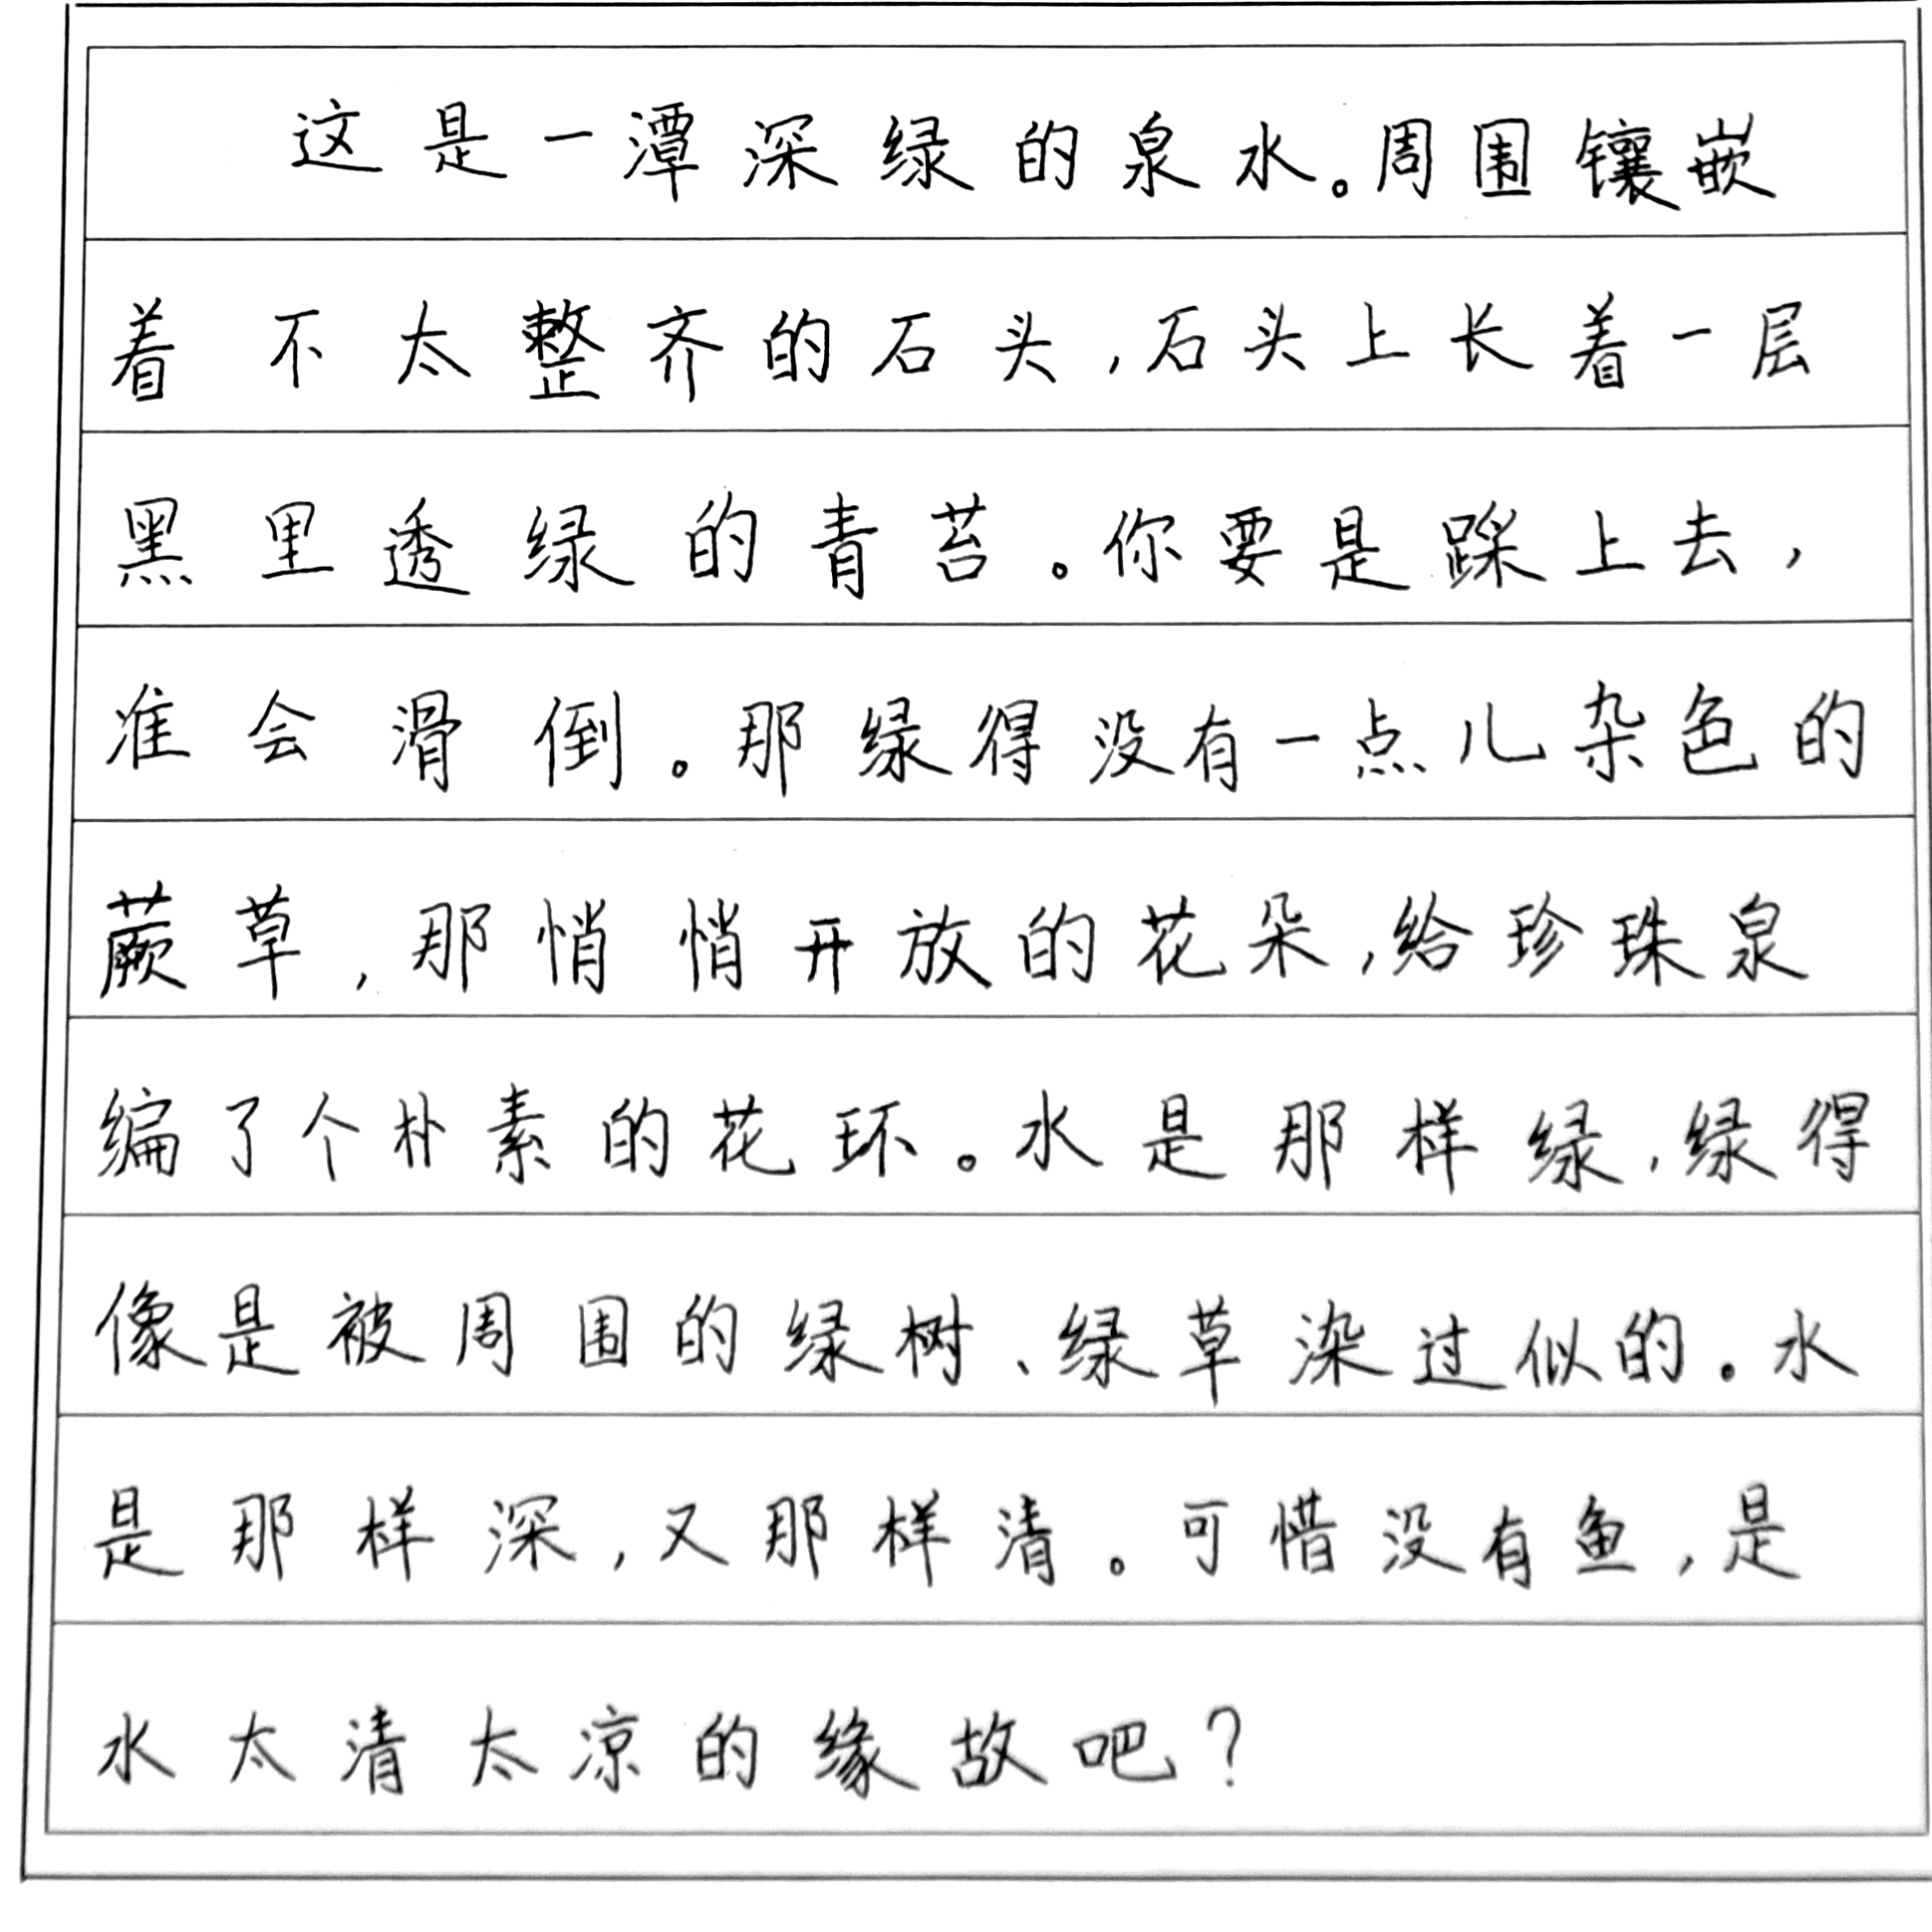 这是一潭深绿的泉水。周围镶嵌
着不太整齐的石头,石头上长着一层
黑里透绿的青苔。你要是踩上去,
准会滑倒。那绿得没有一点儿杂色的
蕨草,那悄悄开放的花朵,给珍珠泉
编了个朴素的花环。水是那样绿,绿得
像是被周围的绿树、绿草染过似的。水
是那样深,又那样清。可惜没有鱼,是
水太清太凉的缘故吧?